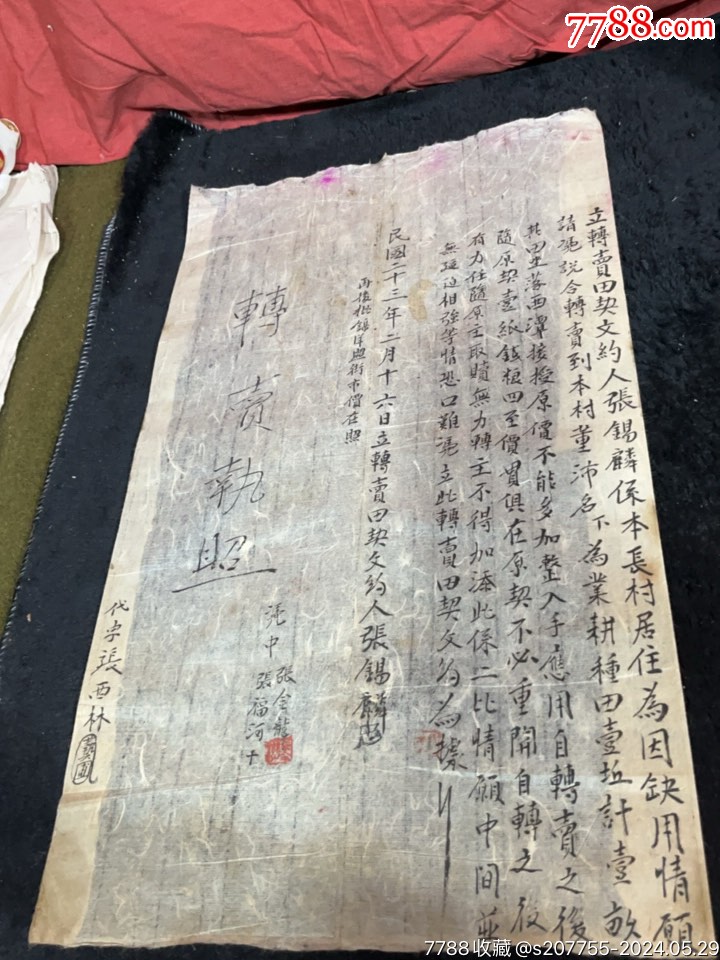 7788.com
立轉賣田契文約人張錫麟係本長村居住為因缺用情願
請憑說合轉賣到本村董沛名下為業耕種田壹坵計壹畝
其田坐落西潭接授原價不能多加整入手應用自轉賣之後
隨原契壹紙錢粮四至價買俱在原契不必重開自轉之後
有力任隨原主取贖無力轉主不得加添此係二比情願中間並
無逼迫相強等情恐口難憑立此轉賣田契文約為據
民國二十三年二月十六日立轉賣田契文約人張錫麟
再後批銀洋照街市價在照
轉賣執照
憑中 張金龍
張福河 十
代字張西林
7788收藏@s207755-2024.05.29